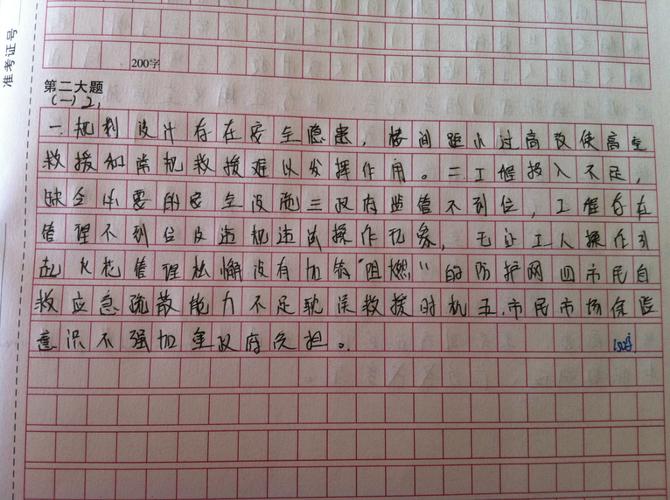 准考证号
200字
第二大题
(一)2、
一.规划设计存在安全隐患,楼间距小过高致使高空
救援和常规救援难以发挥作用。二.工程投入不足,
缺全必要的安全设施三政府监管不到位,工程存在
管理不到位及违规违法操作现象,无证工人操作引
起火花管理松懈没有加装"阻燃"的防护网四市民自
救应急疏散能力不足耽误救援时机五.市民市场保险
意识不强加重政府负担。